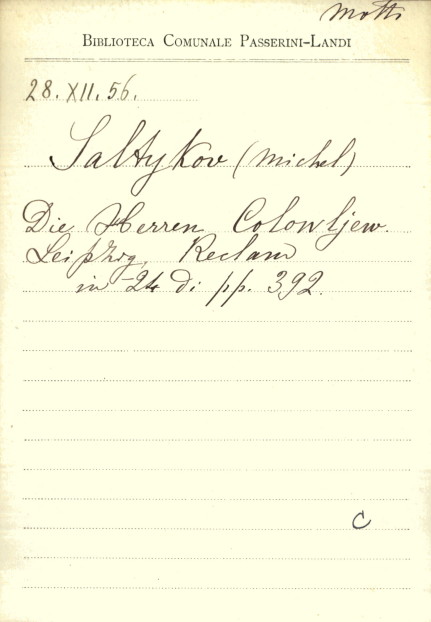 Motti
BIBLIOTECA COMUNALE PASSERINI-LANDI
28. XII. 56.
Saltykov (Michel)
Die Herren Colowljew.
Leipzig, Reclam
in 24 di pp. 392.
C